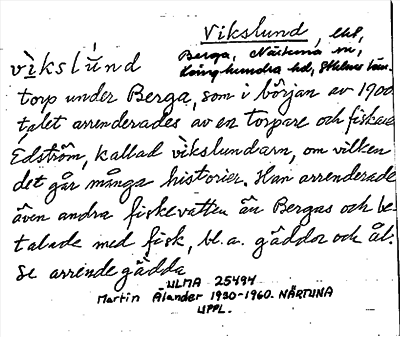 Vikslund,
Berga, Närtuna sn,
Långhundra hd, Sthlms län.
vìkslúnd
torp under Berga, som i början av 1900
talet arrenderades av en torpare och fiskare
Edström, kallad vikslundarn, om vilken
det går många historier. Han arrenderade
även andra fiskevatten än Bergas och be-
talade med fisk, bl. a. gäddor och ål.
Se arrendegädda
ULMA 25494
Martin Ålander 1930-1960. NÄRTUNA
UPPL.